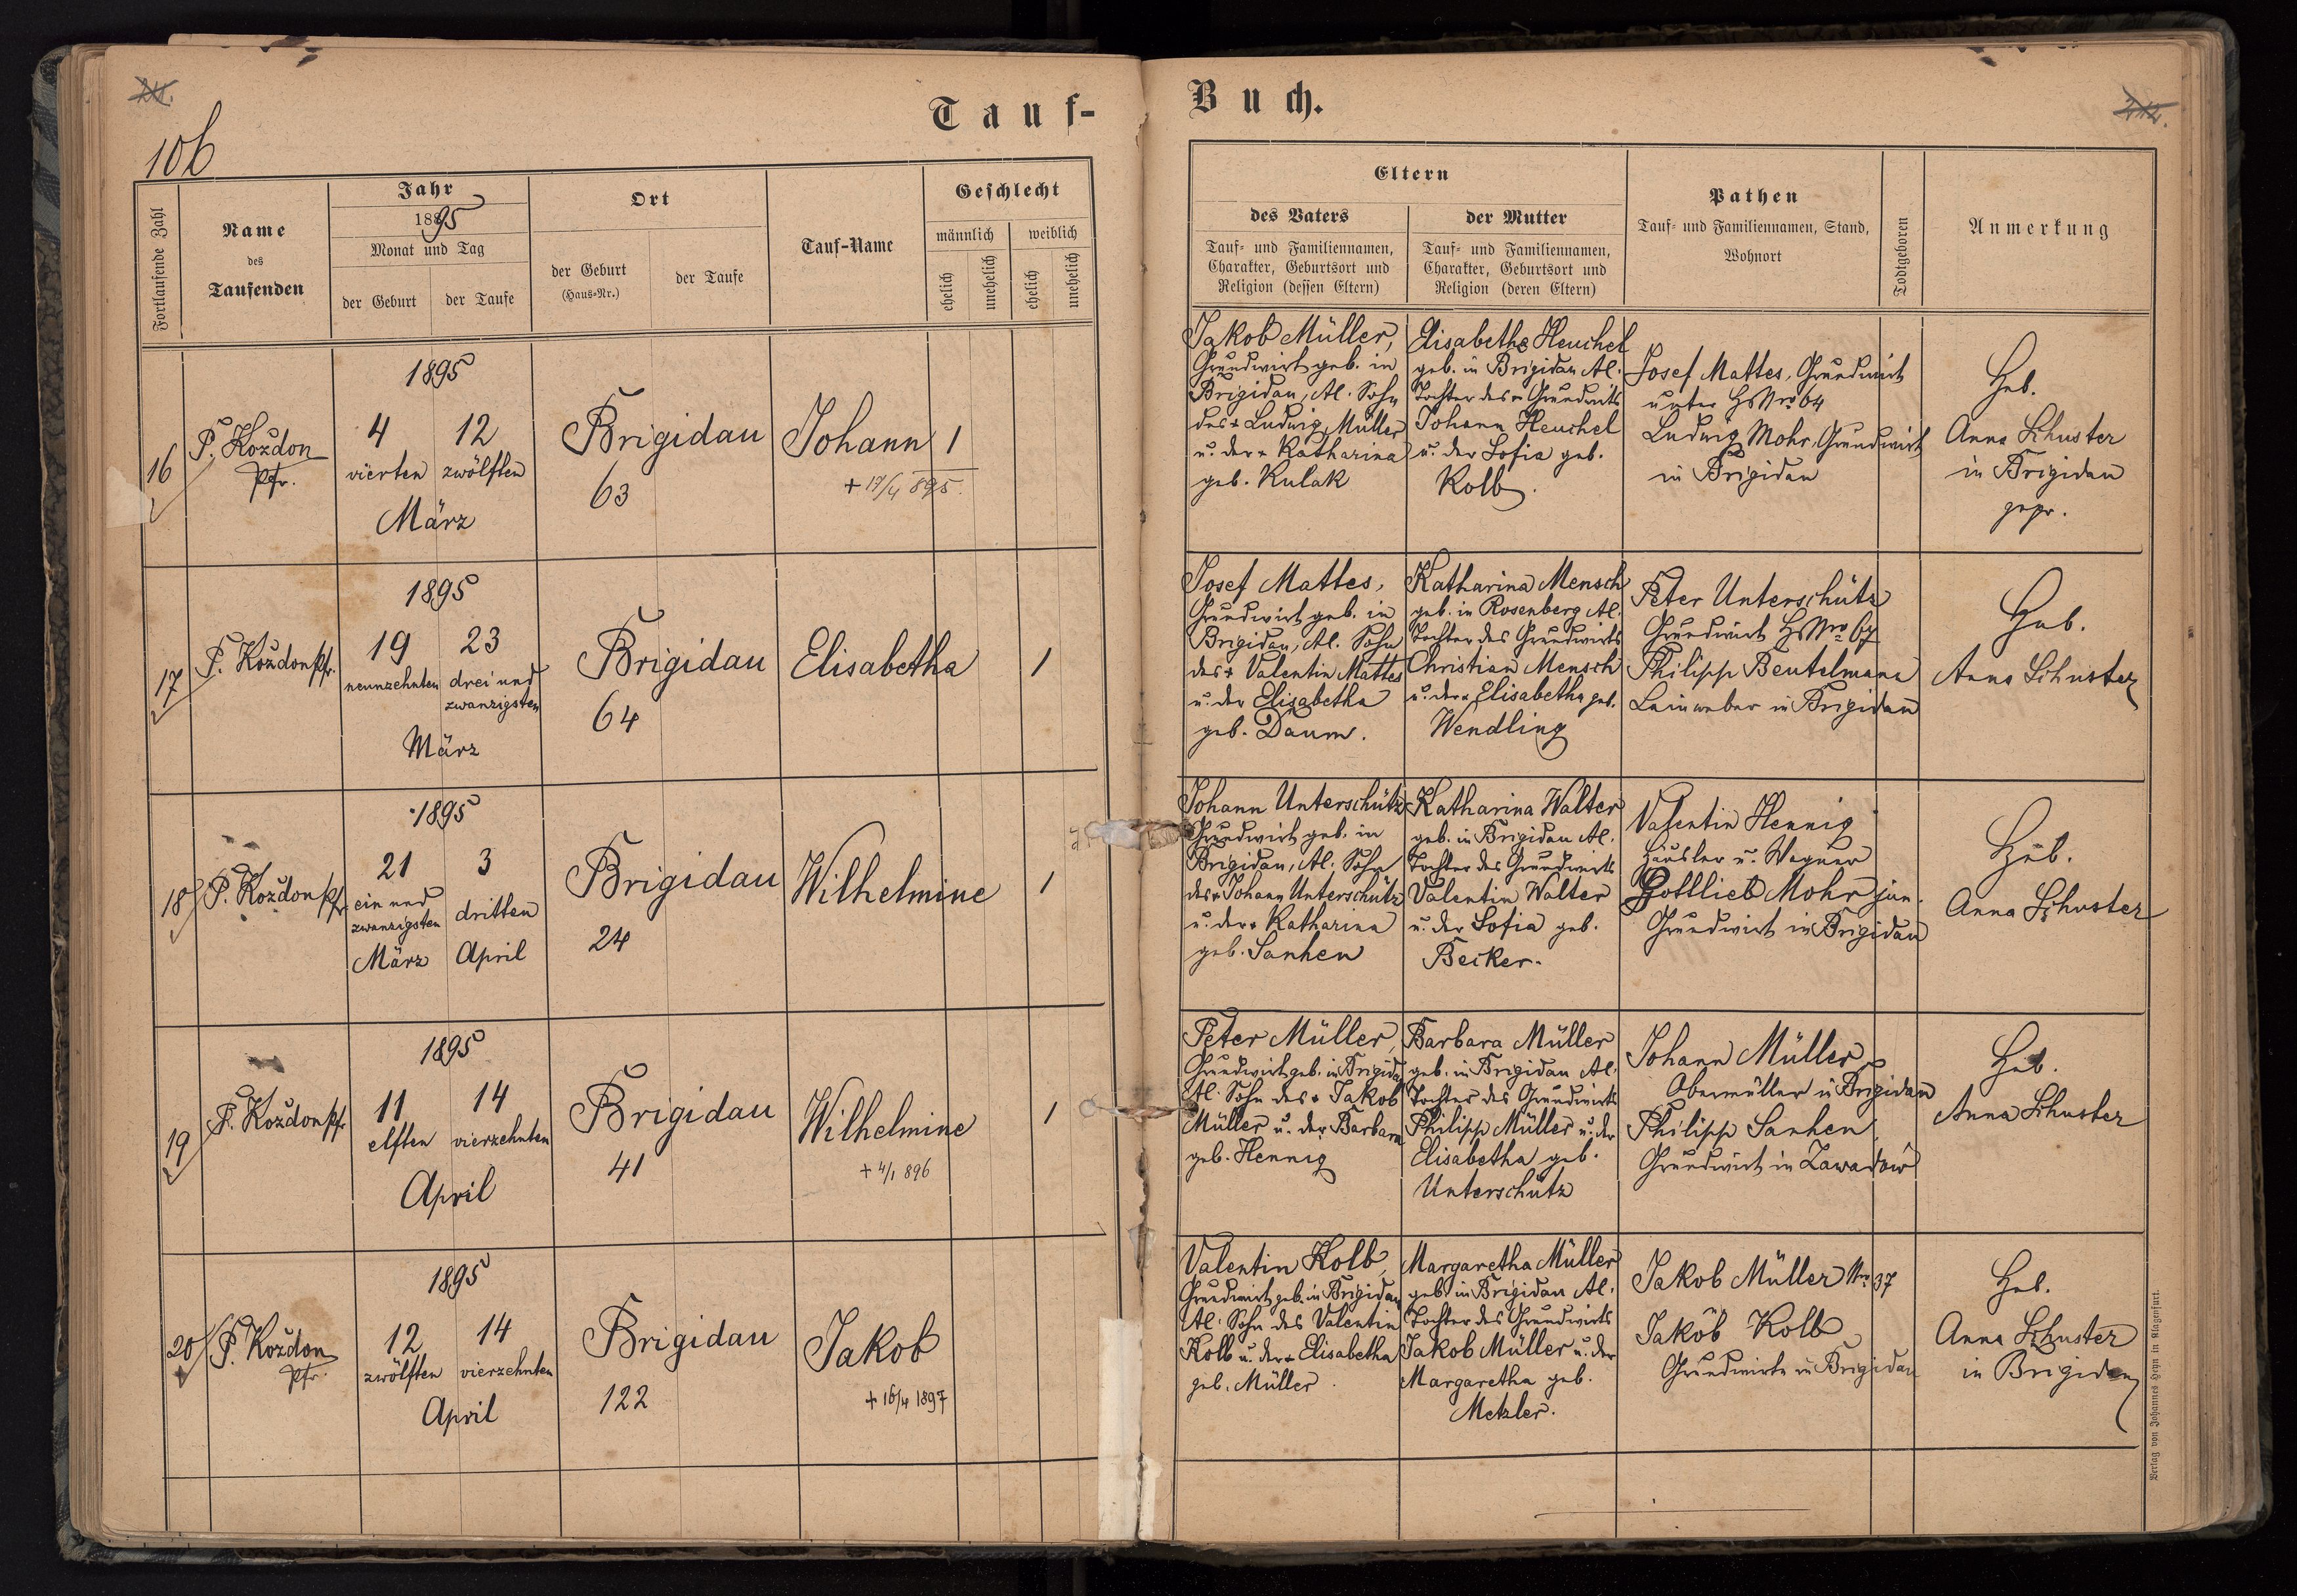 106
Tauf-
Buch.
Fortlaufende Zahl
Name
des
Taufenden
Jahr
1895
Monat und Tag
der Geburt
der Taufe
Ort
der Geburt
(Haus-Nr.)
der Taufe
Tauf-Name
Geschlecht
männlich
weiblich
ehelich
unehelich
ehelich
unehelich
Eltern
des Vaters
Tauf- und Familiennamen,
Charakter, Geburtsort und
Religion (dessen Eltern)
der Mutter
Tauf- und Familiennamen,
Charakter, Geburtsort und
Religion (deren Eltern)
Pathen
Tauf- und Familiennamen, Stand,
Wohnort
Todtgeboren
Anmerkung
16
P. Kozdon
Pfr.
1895
4 12
vierten zwölften
März
Brigidau
63
Johann
+ 17/4 895.
1
Jakob Müller,
Grundwirt geb. in
Brigidau, Al. Sohn
des + Ludwig Müller
u. der + Katharina
geb. Kulak
Elisabetha Heuchel
geb. in Brigidau Al.
Tochter des + Grundwirts
Johann Heuchel
u. der Sofia geb.
Kolb.
Josef Mattes, Grundwirt
unter HsNro 64
Ludwig Mohr, Grundwirt
in Brigidau
Heb.
Anna Schuster
in Brigidau
gepr.
17
P. Kozdon Pfr.
1895
19 23
neunzehnten drei und
zwanzigsten
März
Brigidau
64
Elisabetha
1
Josef Mattes,
Grundwirt geb. in
Brigidau, Al. Sohn
des + Valentin Mattes
u. der Elisabetha
geb. Daum.
Katharina Mensch
geb. in Rosenberg Al.
Tochter des Grundwirts
Christian Mensch
u. der + Elisabetha geb.
Wendling
Peter Unterschütz
Grundwirt HsNro 67
Philipp Beutelmann
Leinweber in Brigidau
Heb.
Anna Schuster
18
P. Kozdon Pfr.
1895
21 3
ein und
zwanzigsten dritten
März April
Brigidau
24
Wilhelmine
1
Johann Unterschütz
Grundwirt geb. in
Brigidau, Al. Sohn
des + Johann Unterschütz
u. der + Katharina
geb. Sanhen
Katharina Walter
geb. in Brigidau Al.
Tochter des Grundwirts
Valentin Walter
u. der Sofia geb.
Becker.
Valentin Hennig
Häusler u. Wagner
Gottlieb Mohr jun.
Grundwirt in Brigidau
Heb.
Anna Schuster
19
P. Kozdon Pfr.
1895
11 14
elften vierzehnten
April
Brigidau
41
Wilhelmine
+ 4/1 896
1
Peter Müller,
Grundwirt geb. in Brigidau
Al. Sohn des + Jakob
Müller u. der Barbara
geb. Hennig
Barbara Müller
geb. in Brigidau Al.
Tochter des Grundwirts
Philipp Müller u. der
Elisabetha geb.
Unterschütz
Johann Müller,
Obermüller in Brigidau
Philipp Sanhen,
Grundwirt in Zawadow
Heb.
Anna Schuster
20
P. Kozdon
Pfr.
1895
12 14
zwölften vierzehnten
April
Brigidau
122
Jakob
+ 16/4 1897
Valentin Kolb,
Grundwirt geb. in Brigidau
Al. Sohn des Valentin
Kolb u. der + Elisabetha
geb. Müller.
Margaretha Müller
geb. in Brigidau Al.
Tochter des Grundwirts
Jakob Müller u. der
Margaretha geb.
Metzler.
Jakob Müller Nro 37
Jakob Kolb
Grundwirte in Brigidau
Heb.
Anna Schuster
in Brigidau
Verlag von Johannes Heyn in Klagenfurt.